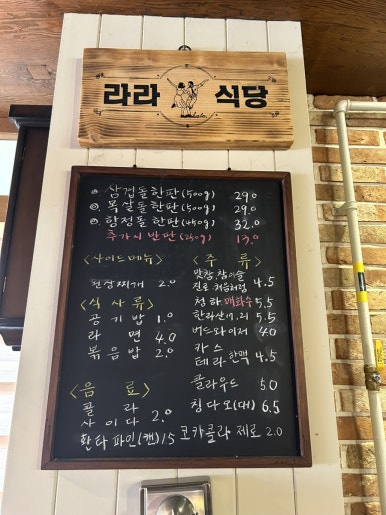 라라 식당
삼겹돌한판(500g) 29.0
목살돌한판(500g) 29.0
항정돌한판(450g) 32.0
추가시 반판(250g) 13.0
<사이드메뉴>
된장찌개 2.0
<식사류>
공기밥 1.0
라면 4.0
볶음밥 2.0
<음료>
콜라
사이다 2.0
환타파인(캔) 1.5
<주류>
맛창.참이슬
진로.처음처럼 4.5
청하 매화수 5.5
한라산 17, 21 5.5
버드와이저 4.0
카스
테라 한맥 4.5
클라우드 5.0
칭다오(대) 6.5
코카콜라 제로 2.0